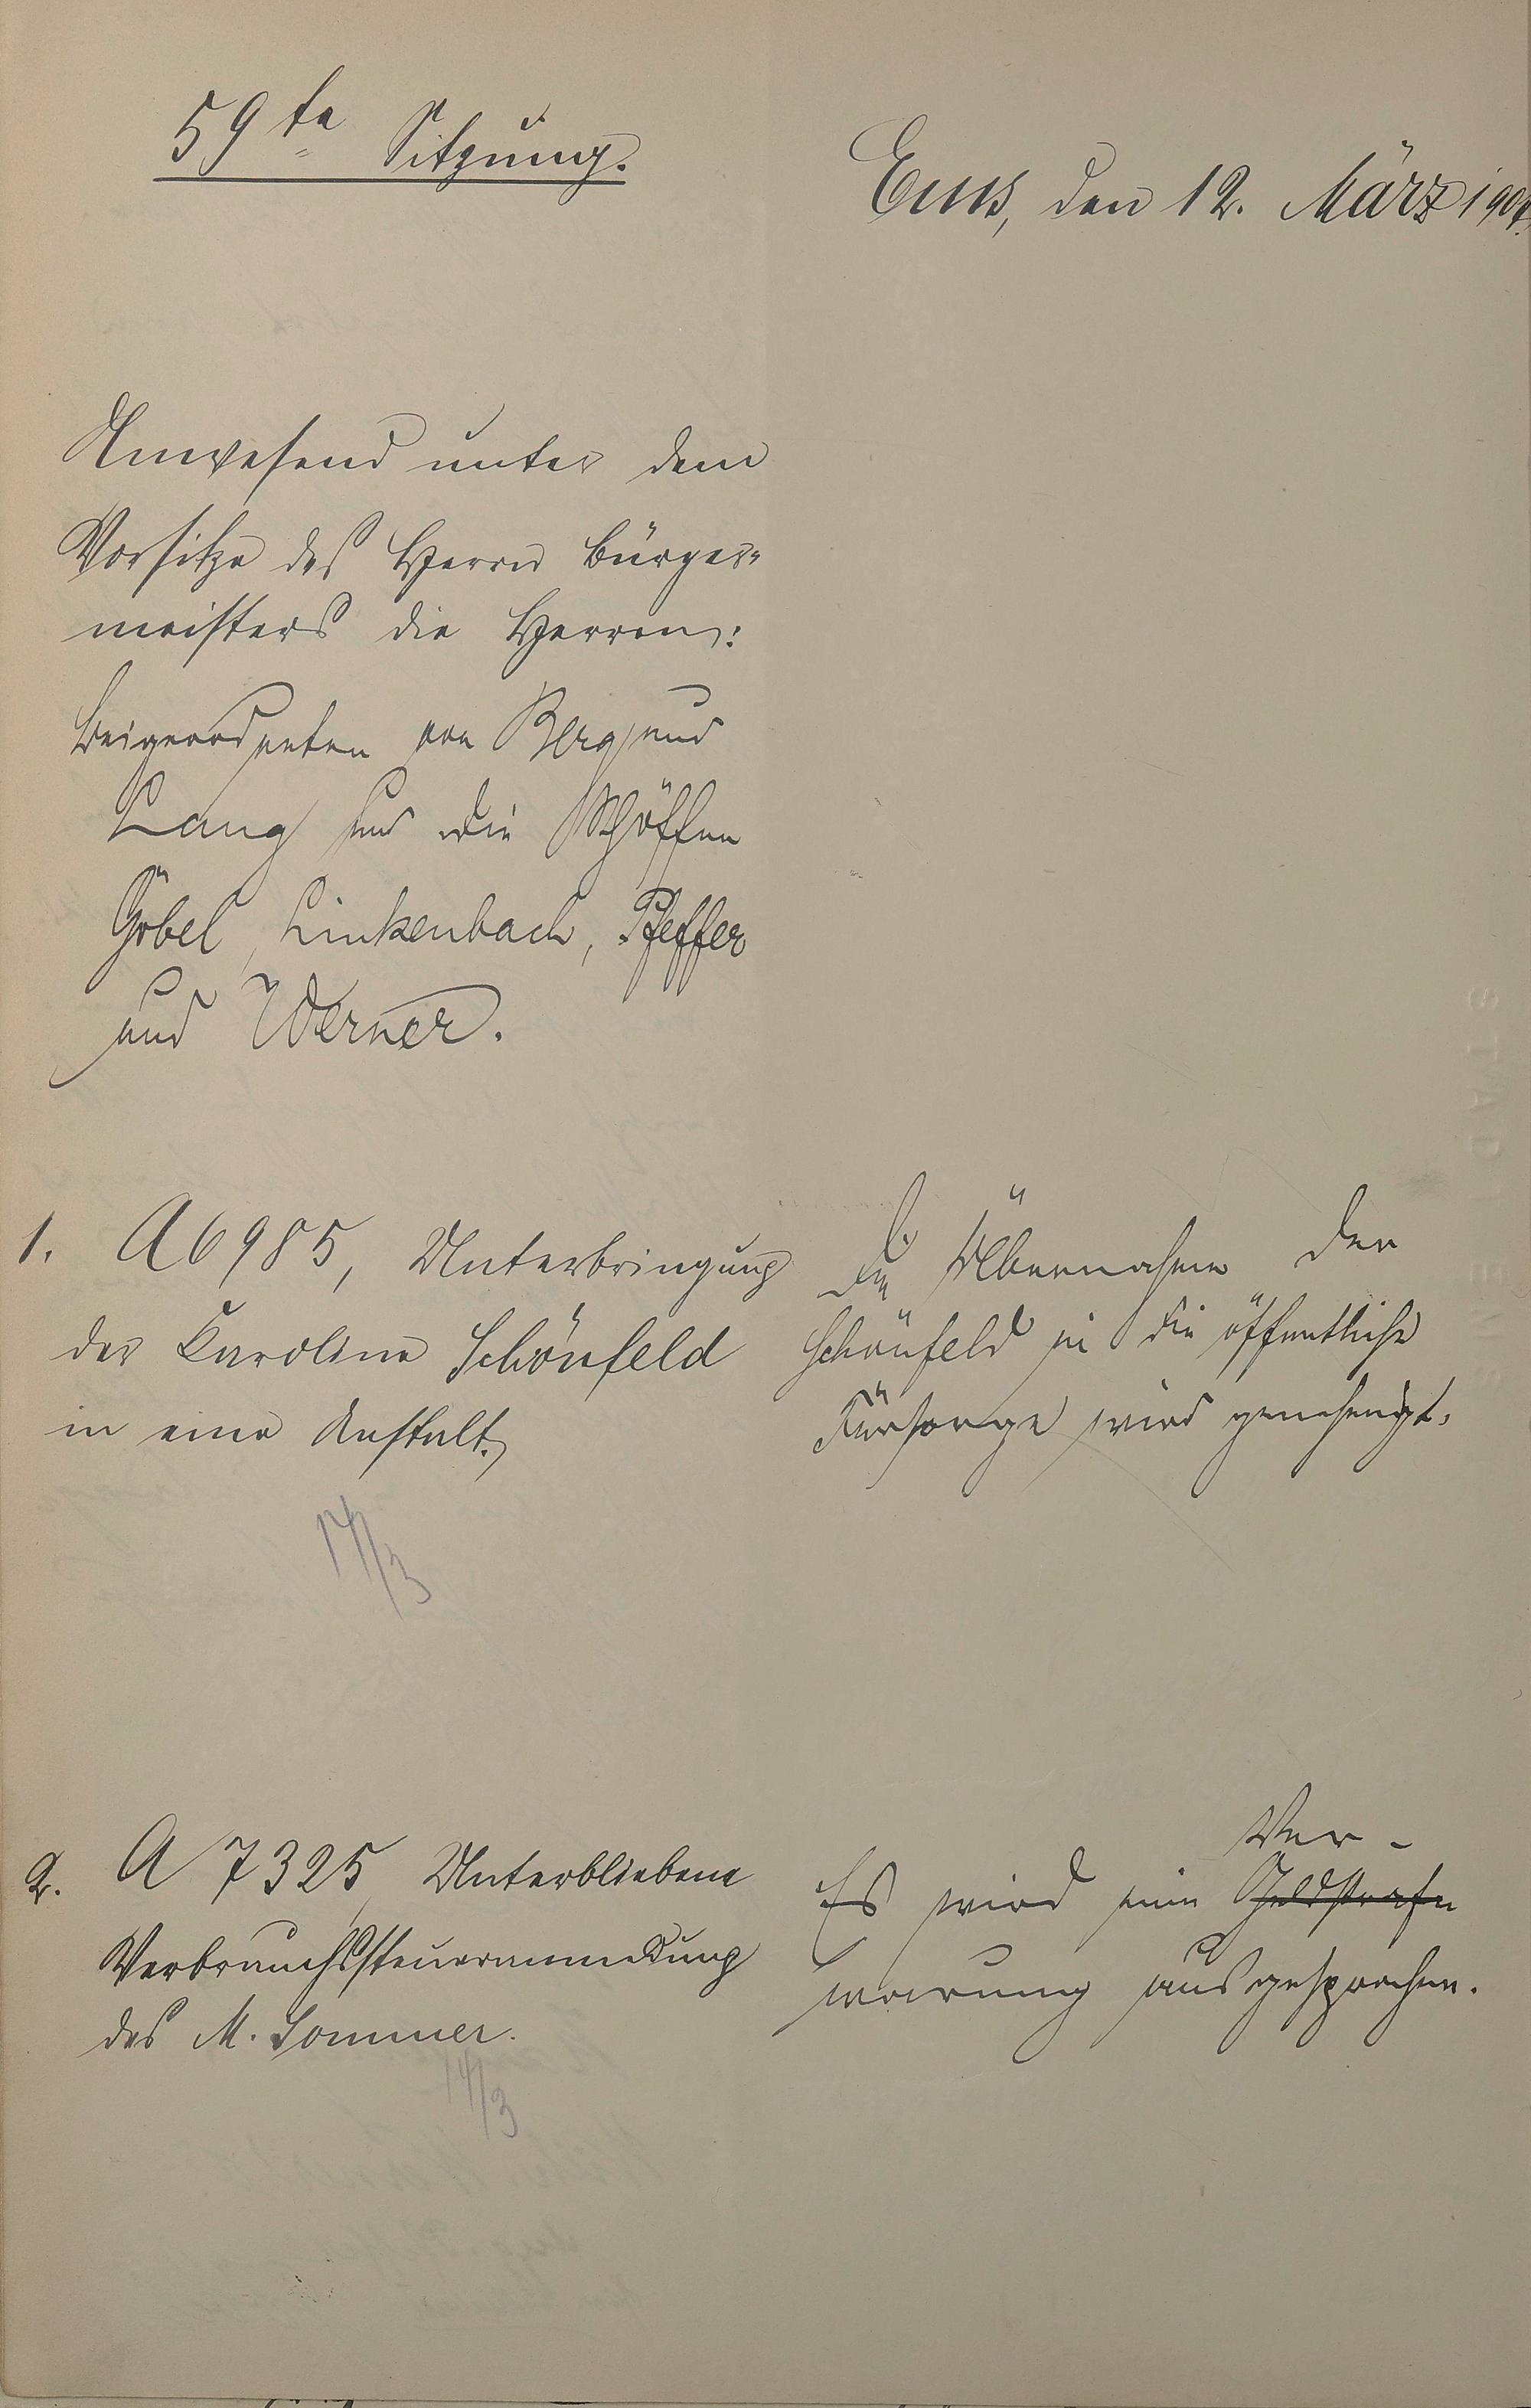 59te Sitzung.
Ems, den 12. März 1904.
Anwesend unter dem
Vorsitze des Herrn Bürger-
meisters die Herren:
Beigeordneten von Berg und
Lang und die Schöffen
Göbel, Linkenbach, Pfeffer
und Werner.
1. A 6985, Unterbringung
der Karoline Schönfeld
in eine Anstalt.
14/3
Die Übernahme der
Schönfeld in die öffentliche
Fürsorge wird genehmigt.
2. A 7325, Unterbliebene
Verbrauchssteueranmeldung
des M. Sommer.
14/3
Ver-
Es wird eine Geldstrafe
warnung ausgesprochen.